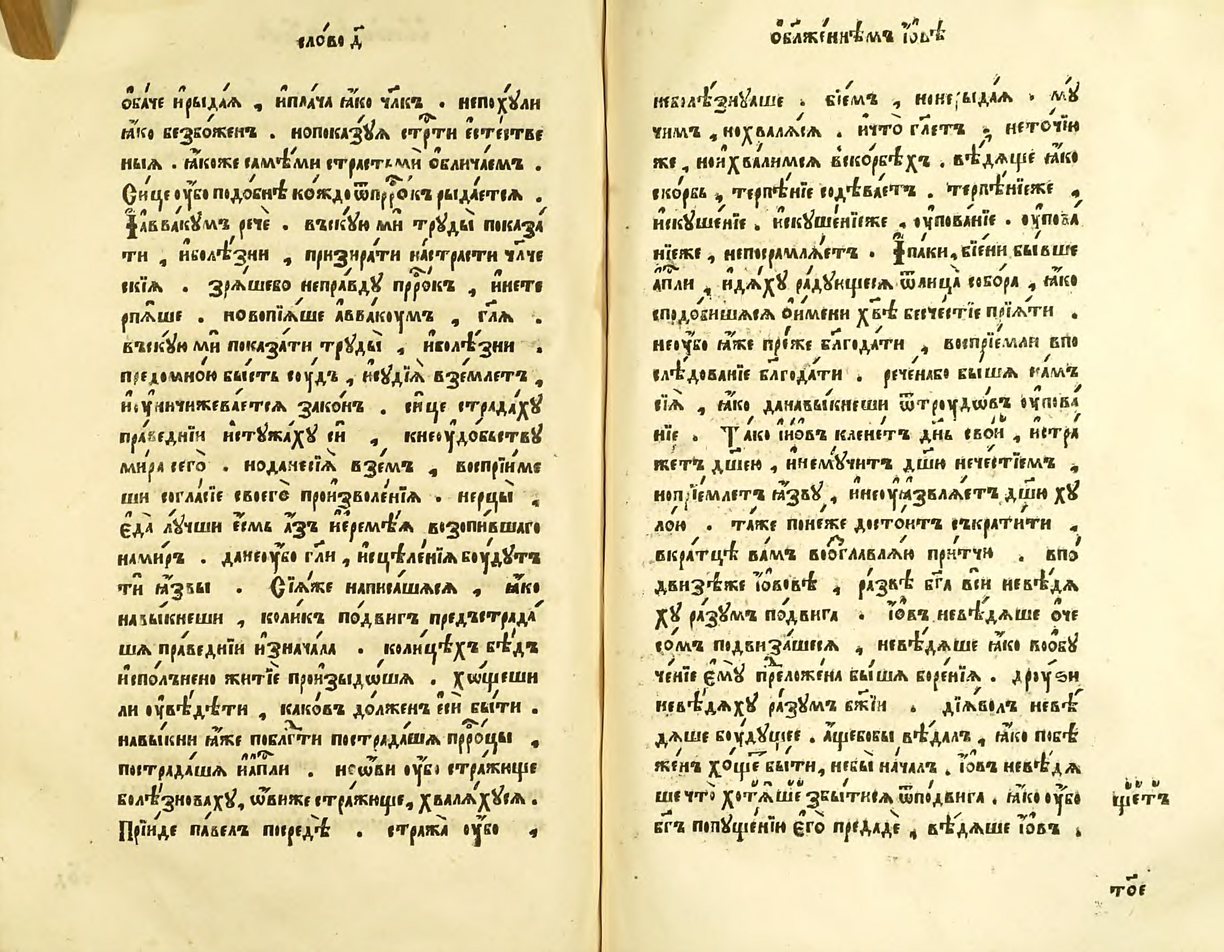 сло́во д҃
ѻ҆ба́че и҆рыда́ѧ , и҆пла́ча ꙗ҆́ко чл҃къ . непохꙋ́ли
ꙗ҆́ко безбо́женъ . нопоказꙋ́ѧ стрⷭ҇ти є҆сте́стве
ныѧ . ꙗ҆́коже самѣ́ми страстьми̑ ѻ҆блича́емъ .
Си́це оу҆́бо подо́бнѣ ко́ждо ѿпрⷪ҇ро́къ рыда́етсѧ .
І҆авваку́мъ речѐ . въскꙋ́ю мѝ трꙋды̀ показа́
ти , и҆болѣ́зни , призира́ти настра́сти чл҃че
скїѧ . зрѧ́шебо непра́вдꙋ прⷪ҇ро́къ , и҆нете
рпѧ́ше . новопїѧ́ше авваку́мъ , гл҃ѧ .
въскꙋ́ю мѝ показа́ти трꙋды̀ , и҆болѣ́зни .
предомно́ю бы́сть соу́дъ , и҆сꙋдїѧ̀ взе́млетъ ,
и҆оу҆ничижева́етсѧ зако́нъ . си́це страда́хꙋ
пра́веднїи и҆стꙋжа́хꙋ сѝ , кнеоу҆до́бьствꙋ
ми́ра сего̀ . нода́несїѧ̀ взе́мъ , воспрїи́ме
ши согла́сїе своегѐ произволе́нїѧ . нерцы̀ ,
є҆да̀ лꙋ́чши є҆́смь а҆́зъ и҆еремѣ́ѧ возопи́вшаго
нами́ръ . данеоу҆́бо гл҃и , и҆сцѣле́нїѧ боу́дꙋтъ
тѝ ꙗ҆́звы . Сїѧ́же написа́шасѧ , ꙗ҆́ко
навы́кнеши , коли́къ по́двигъ предъстрада́
шѧ пра́веднїи и҆знача́ла . коли́цѣхъ бѣ́дъ
и҆спо́лънено житїѐ произыдо́шѧ . хо́щеши
ли оу҆вѣ́дѣти , како́въ до́лженъ є҆сѝ бы́ти .
навы́кни ꙗ҆́же побл҃гⷣти пострада́шѧ прⷪ҇ро́цы ,
пострада́шѧ и҆а҆пли . нѡ҆ви оу҆́бо стра́жище
болѣ́зноваху , ѡ҆виже стра́жище , хвалѧ́хꙋсѧ .
Прїи́де па́велъ посредѣ̀ . стража̀ оу҆́бо ,
ѻ҆бл҃же́ннѣмъ і҆́ѡвѣ
неболѣ́знꙋѧше . бїе́мъ , ноне рыда́ѧ . мꙋ́
чимъ , нохвалѧ́сѧ . и҆что̀ гл҃етъ , неточїю
же , нои҆хва́лимсѧ в̾ско́рбѣхъ . вѣ́дѧще ꙗ҆́ко
ско́рбь , терпѣ́нїе содѣ́ваетъ . терпѣ́нїеже ,
и҆скꙋше́нїе . и҆скꙋше́нїеже , оу҆пова́нїе . оу҆пова́
нїеже , непосрамлѧ́етъ . І҆па́ки , бїе́ни бы́вше
а҆пⷭ҇ли , и҆дѧ́хꙋ ра́дꙋющесѧ ѿлица̀ собо́ра , ꙗ҆́ко
сподоби́шасѧ ѻ҆и́мени хв҃ѣ бесче́стїе прїѧ́ти .
неоу҆́бо ꙗ҆́же пре́же бл҃года́ти , воспрїе́мли впо
слѣ́дованїе бл҃года́ти . рече́набо бы́шѧ на́мъ
сїѧ̀ , ꙗ҆́ко данавы́кнеши ѿтроу́дѡвъ оу҆пова́
нїе . Та́ко і҆́ѡвъ клене́тъ дн҃ь сво́й , и҆стра́
жетъ дш҃ею , и҆немꙋ́читъ дш҃ю нече́стїемъ ,
нопрїе́млетъ ꙗ҆́звꙋ , и҆неоу҆ꙗзвлѧ́етъ дш҃ю хꙋ
ло́ю . та́же поне́же досто́итъ съкрати́ти ,
вкра́тцѣ ва́мъ воглавлѧ́ю при́тчю . впо́
двизѣже і҆́ѡвовѣ , ра́звѣ бг҃а всѝ невѣ́дѧ
хꙋ ра́зꙋмъ по́двига . і҆́ѡвъ невѣ́дѧше ѻ҆че
со́мъ подвиза́шесѧ , невѣ́дѧше ꙗ҆́ко вообꙋ
че́нїе є҆мꙋ̀ преложена бы́шѧ боре́нїѧ . дроу́ѕи
невѣ́дѧхꙋ ра́зꙋмъ бж҃їи . дїѧ́волъ невѣ́
дѧше боу́дꙋщее . а҆́щебобы вѣ́далъ , ꙗ҆́ко побѣ
же́нъ хо́щеⷮ бы́ти , небы нача́лъ . і҆́ѡвъ невѣ́дѧ
ше что̀ хотѧ́ше збы́тисѧ ѿпо́двига . ꙗ҆́ко оу҆́бо
щетъ
бг҃ъ попꙋще́нїю є҆го̀ предадѐ , вѣ́дѧше і҆́ѡвъ .
то́е